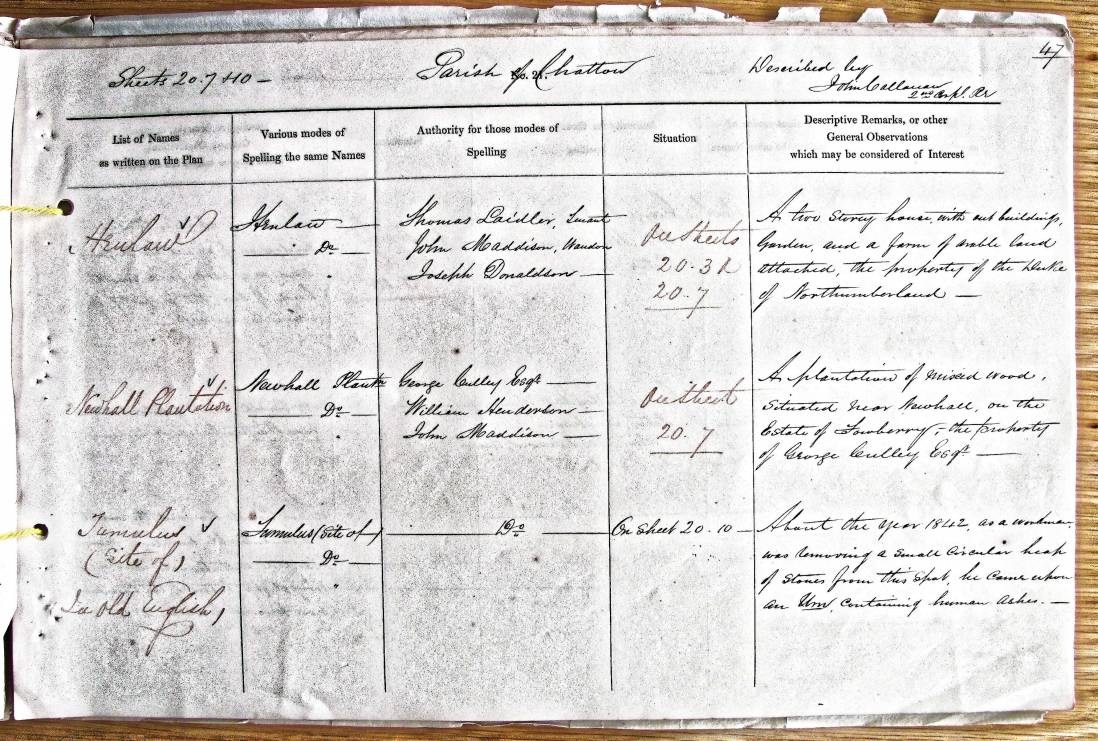 47
Sheets 20.7 & 10 —
Parish of Chatton
No. 21.
Described by
John Callanan
2nd Corpl. RE
List of Names
as written on the Plan
Various modes of
Spelling the same Names
Authority for those modes of
Spelling
Situation
Descriptive Remarks, or other
General Observations
which may be considered of Interest
Henlaw
Henlaw
Do
Thomas Laidler, Tenant
John Maddison, Wandon
Joseph Donaldson
On Sheets
20.3 &
20.7
A two storey house, with out buildings,
Garden, and a farm of arable land
attached, the property of the Duke
of Northumberland —
Newhall Plantation
Newhall Plantn
Do
George Culley Esqr.
William Henderson
John Maddison
On Sheet
20.7
A plantation of mixed wood,
situated near Newhall, on the
Estate of Fowberry, the property
of George Culley Esqr. —
Tumulus
(Site of)
In old English,
Tumulus (Site of)
Do
Do
On Sheet 20.10
About the year 1842, as a workman
was removing a small circular heap
of stones from this spot, he came upon
an Urn, containing human ashes. —